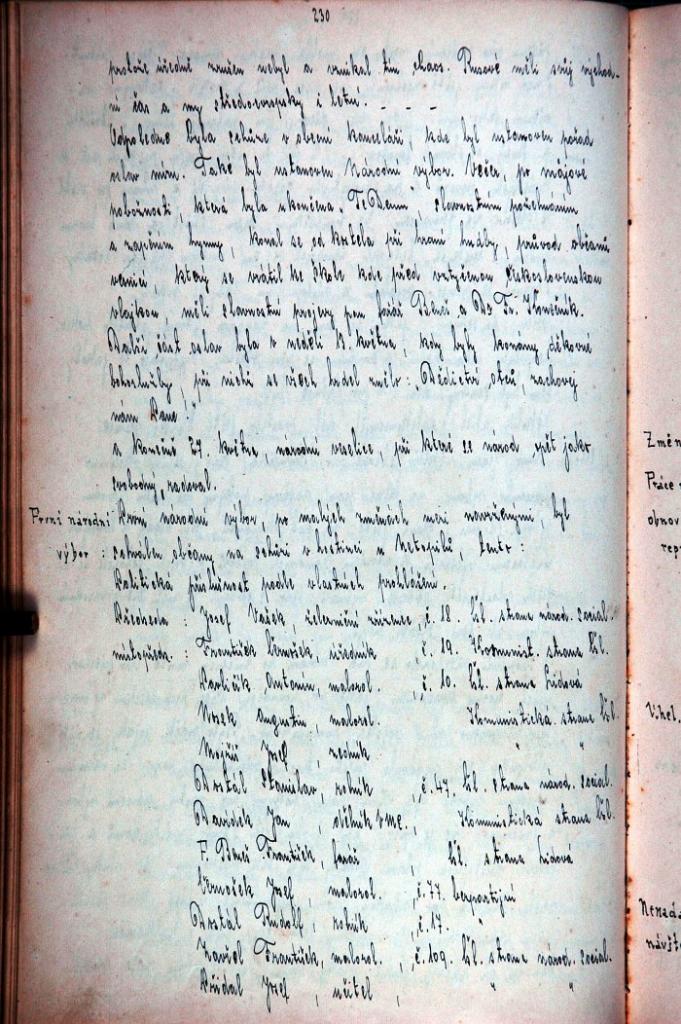 230
protože úředně zrušen nebyl a vznikal tím chaos. Rusové měli svůj východ-
ní čas a my středoevropský i letní. - - -
Odpoledne byla schůze v obecní kanceláři, kde byl ustanoven pořad
oslav míru. Také byl ustanoven Národní výbor. Večer, po májové
pobožnosti, která byla ukončena „Te Deum", slavnostním požehnáním
a zapěním hymny, konal se od kostela při hraní hudby, průvod občanů
vesnicí, který se vrátil ke škole kde před vztyčenou československou
vlajkou, měli slavnostní projevy pan farář Beneš a Dr Fr. Konečník.
Další část oslav byla v neděli 13. května, kdy byly konány děkovné
bohoslužby, při nichž se všech hrdel znělo: „Dědictví otců, zachovej
nám Pane."
a konečně 27. května, národní veselice, při které se národ opět jako
svobodný, radoval.
První národní
výbor :
První národní výbor, po malých změnách mezi navrženými, byl
schválen občany na schůzi v hostinci u Netopilů, tento :
Politická příslušnost podle vlastních prohlášení.
Předseda : Josef Vašek železniční zřízenec, č. 18. čsl. strana národ. social.
místopředs. : František úředník, č. 19. Kommunist. strana čsl.
Pavlíček Antonín, malorol. č. 10. čsl. strana lidová
Augustin, malorol. Kommunistická strana čsl.
Josef, zedník " "
Drstál Stanislav, rolník, č. 47. čsl. strana národ. social.
Davídek Jan, dělník, Kommunistická strana čsl.
F. Beneš František, farář, čsl. strana lidová
Josef malorol., č. 77. bezpartijní
Drstál Rudolf, rolník, č. 17. "
František, malorol., č. 109. čsl. strana národ. social.
Přidal Josef, učitel, " "
Změn
Práce
obnov
rep
Nenadá
návšt